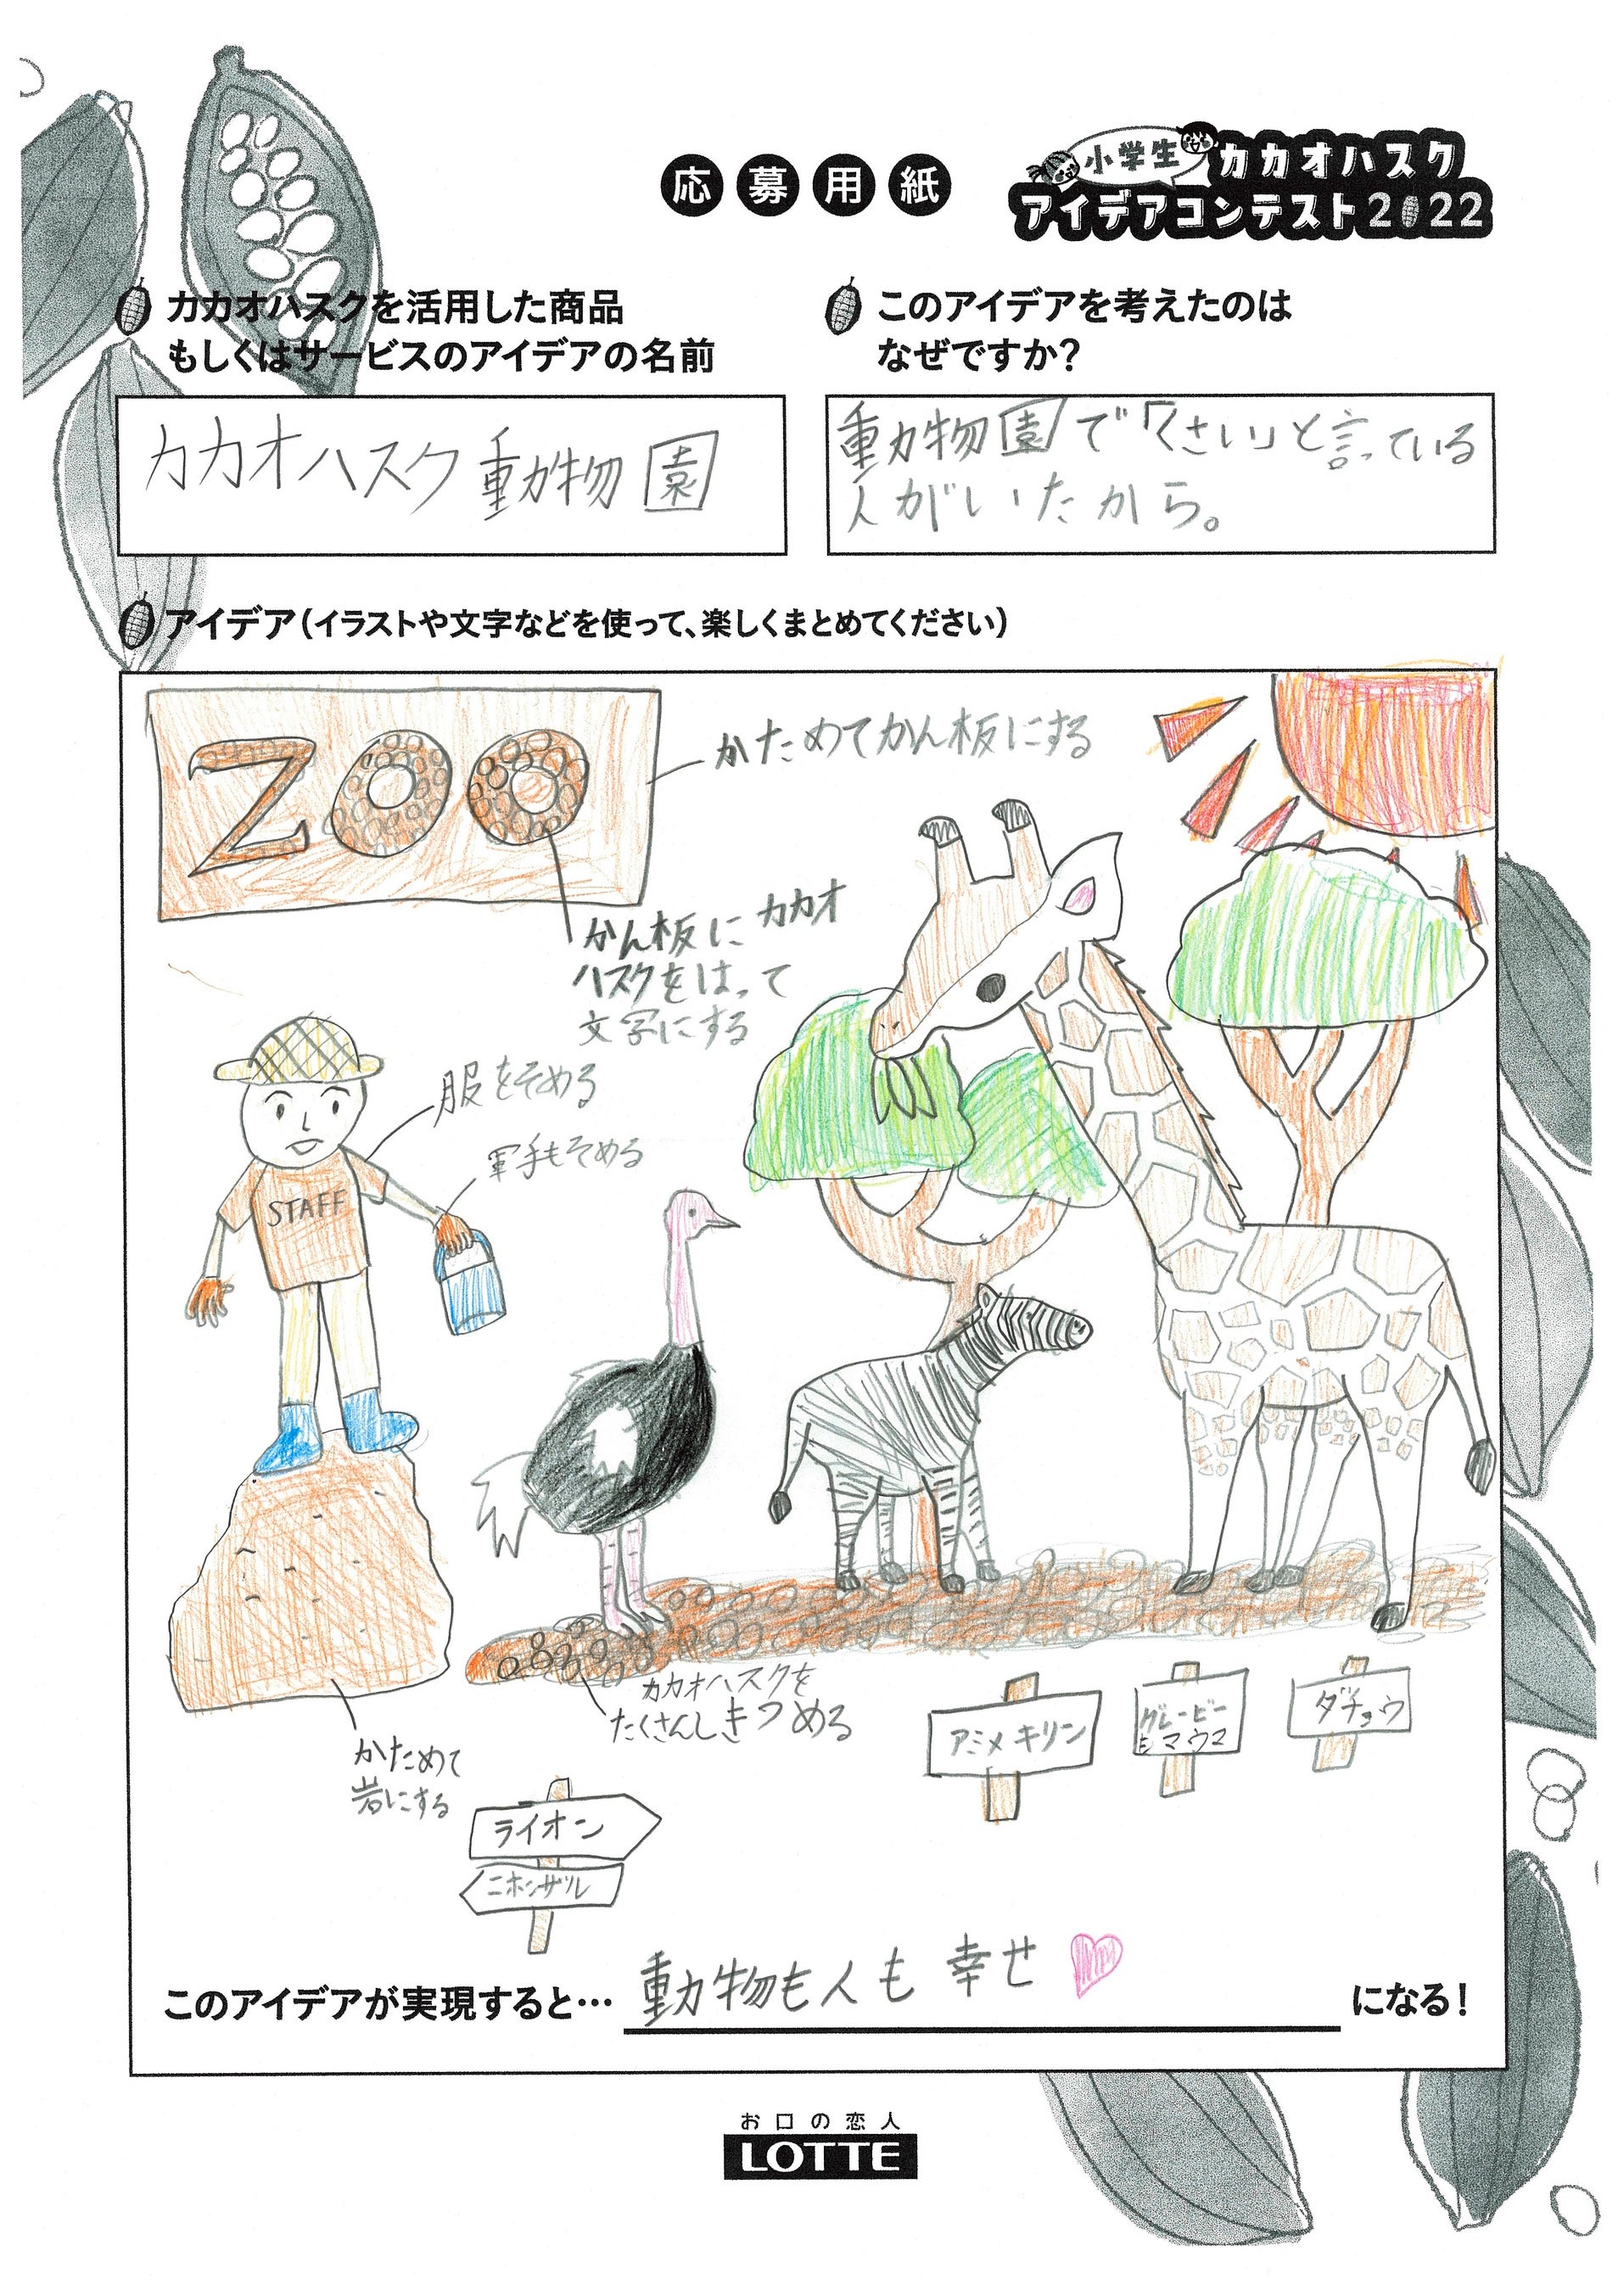 応募用紙
小学生
カカオハスク
アイデアコンテスト2022
カカオハスクを活用した商品
もしくはサービスのアイデアの名前
カカオハスク動物園
このアイデアを考えたのは
なぜですか?
動物園で「くさい」と言っている
人がいたから。
アイデア(イラストや文字などを使って、楽しくまとめてください)
ZOO
かためてかん板にする
かん板にカカオ
ハスクをはって
文字にする
服をそめる
軍手もそめる
STAFF
カカオハスクを
たくさんしきつめる
かためて
岩にする
アミメキリン
グレービー
シマウマ
ダチョウ
ライオン
ニホンザル
このアイデアが実現すると… 動物も人も幸せ になる!
お口の恋人
LOTTE